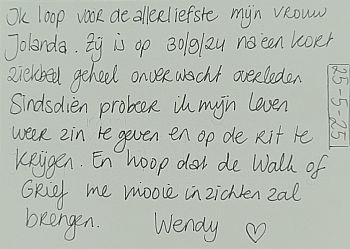 Ik loop voor de allerliefste mijn vrouw
Jolanda. Zij is op 30/9/24 na een kort
ziekbed geheel onverwacht overleden
Sindsdien probeer ik mijn leven
weer zin te geven en op de rit te
krijgen. En hoop dat de Walk of
Grief me mooie inzichten zal
brengen. Wendy ♡
25-5-25